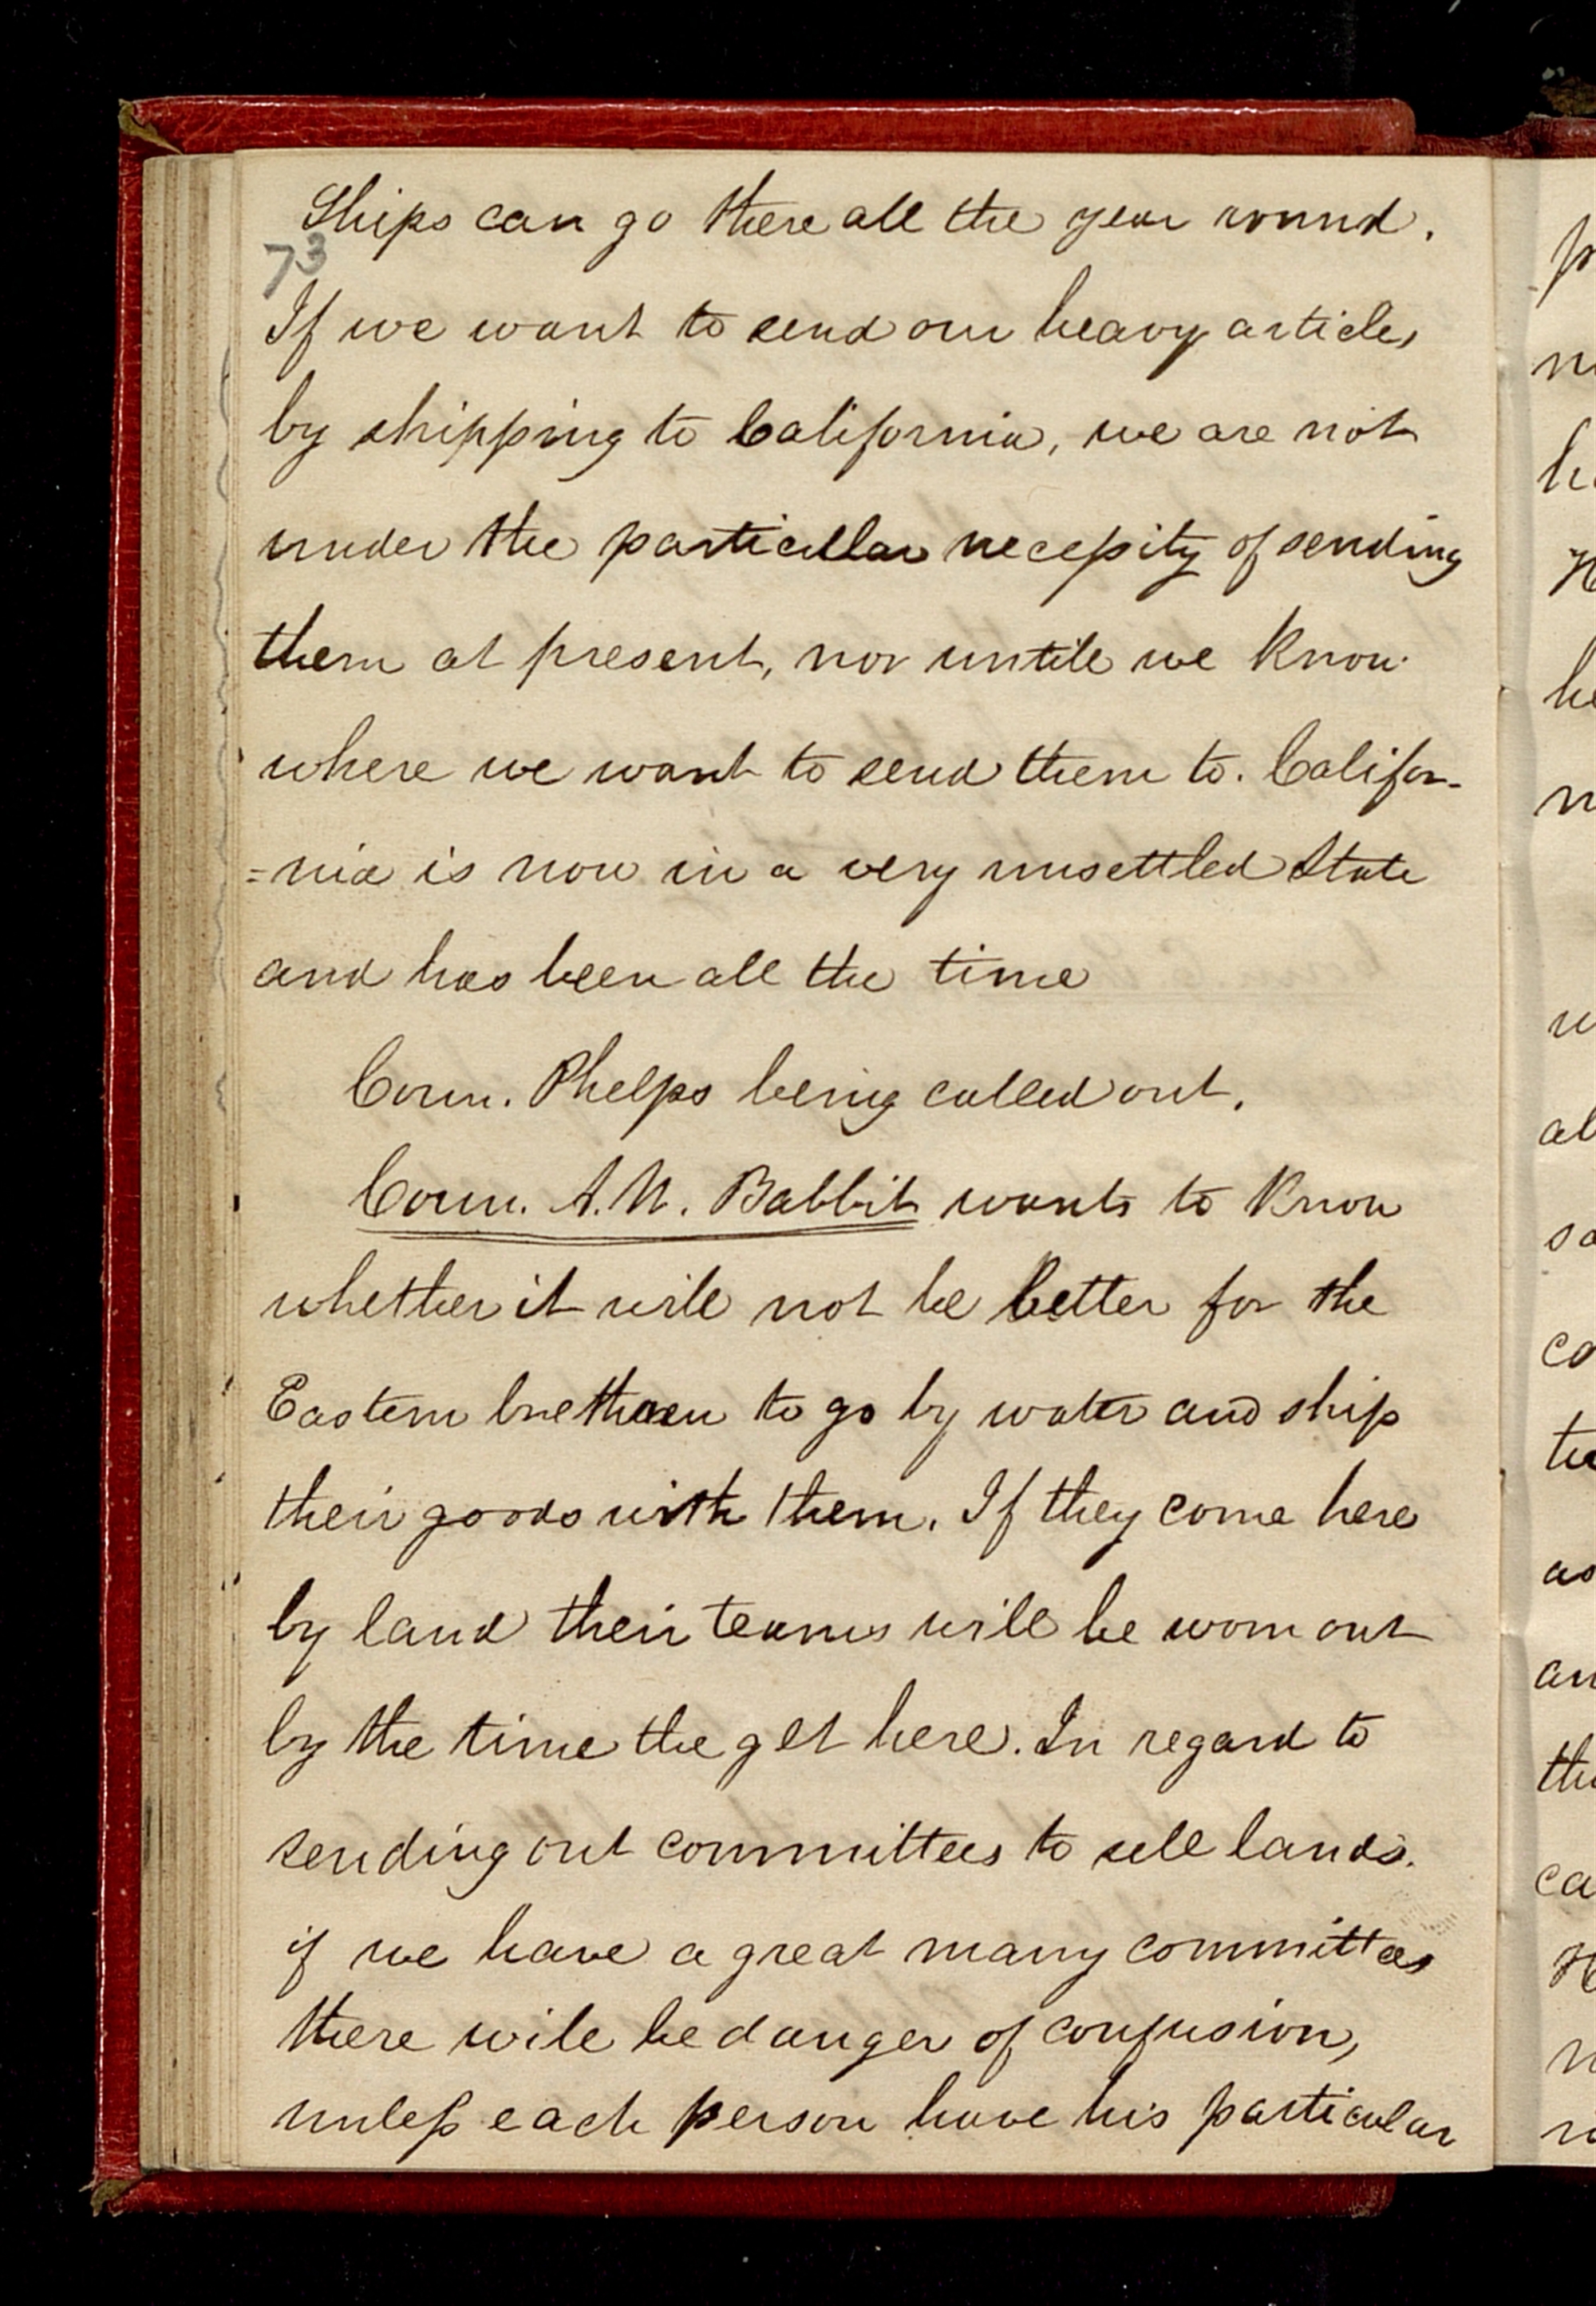 Ships can go there all the year round.
73
If we want to send our heavy articles
by shipping to California, we are not
under the particular necessity of sending
them at present, nor untill we know
where we want to send them to. Califor-
=nia is now in a very unsettled State
and has been all the time
Coun. Phelps being called out.
Coun. A.W. Babbit wants to know
whether it will not be better for the
Eastern bretheren to go by water and ship
their goods with them. If they come here
by land their teams will be worn out
by the time the get here. In regard to
sending out committees to sell lands.
if we have a great many committees
there will be danger of confusion,
unless each person have his particular